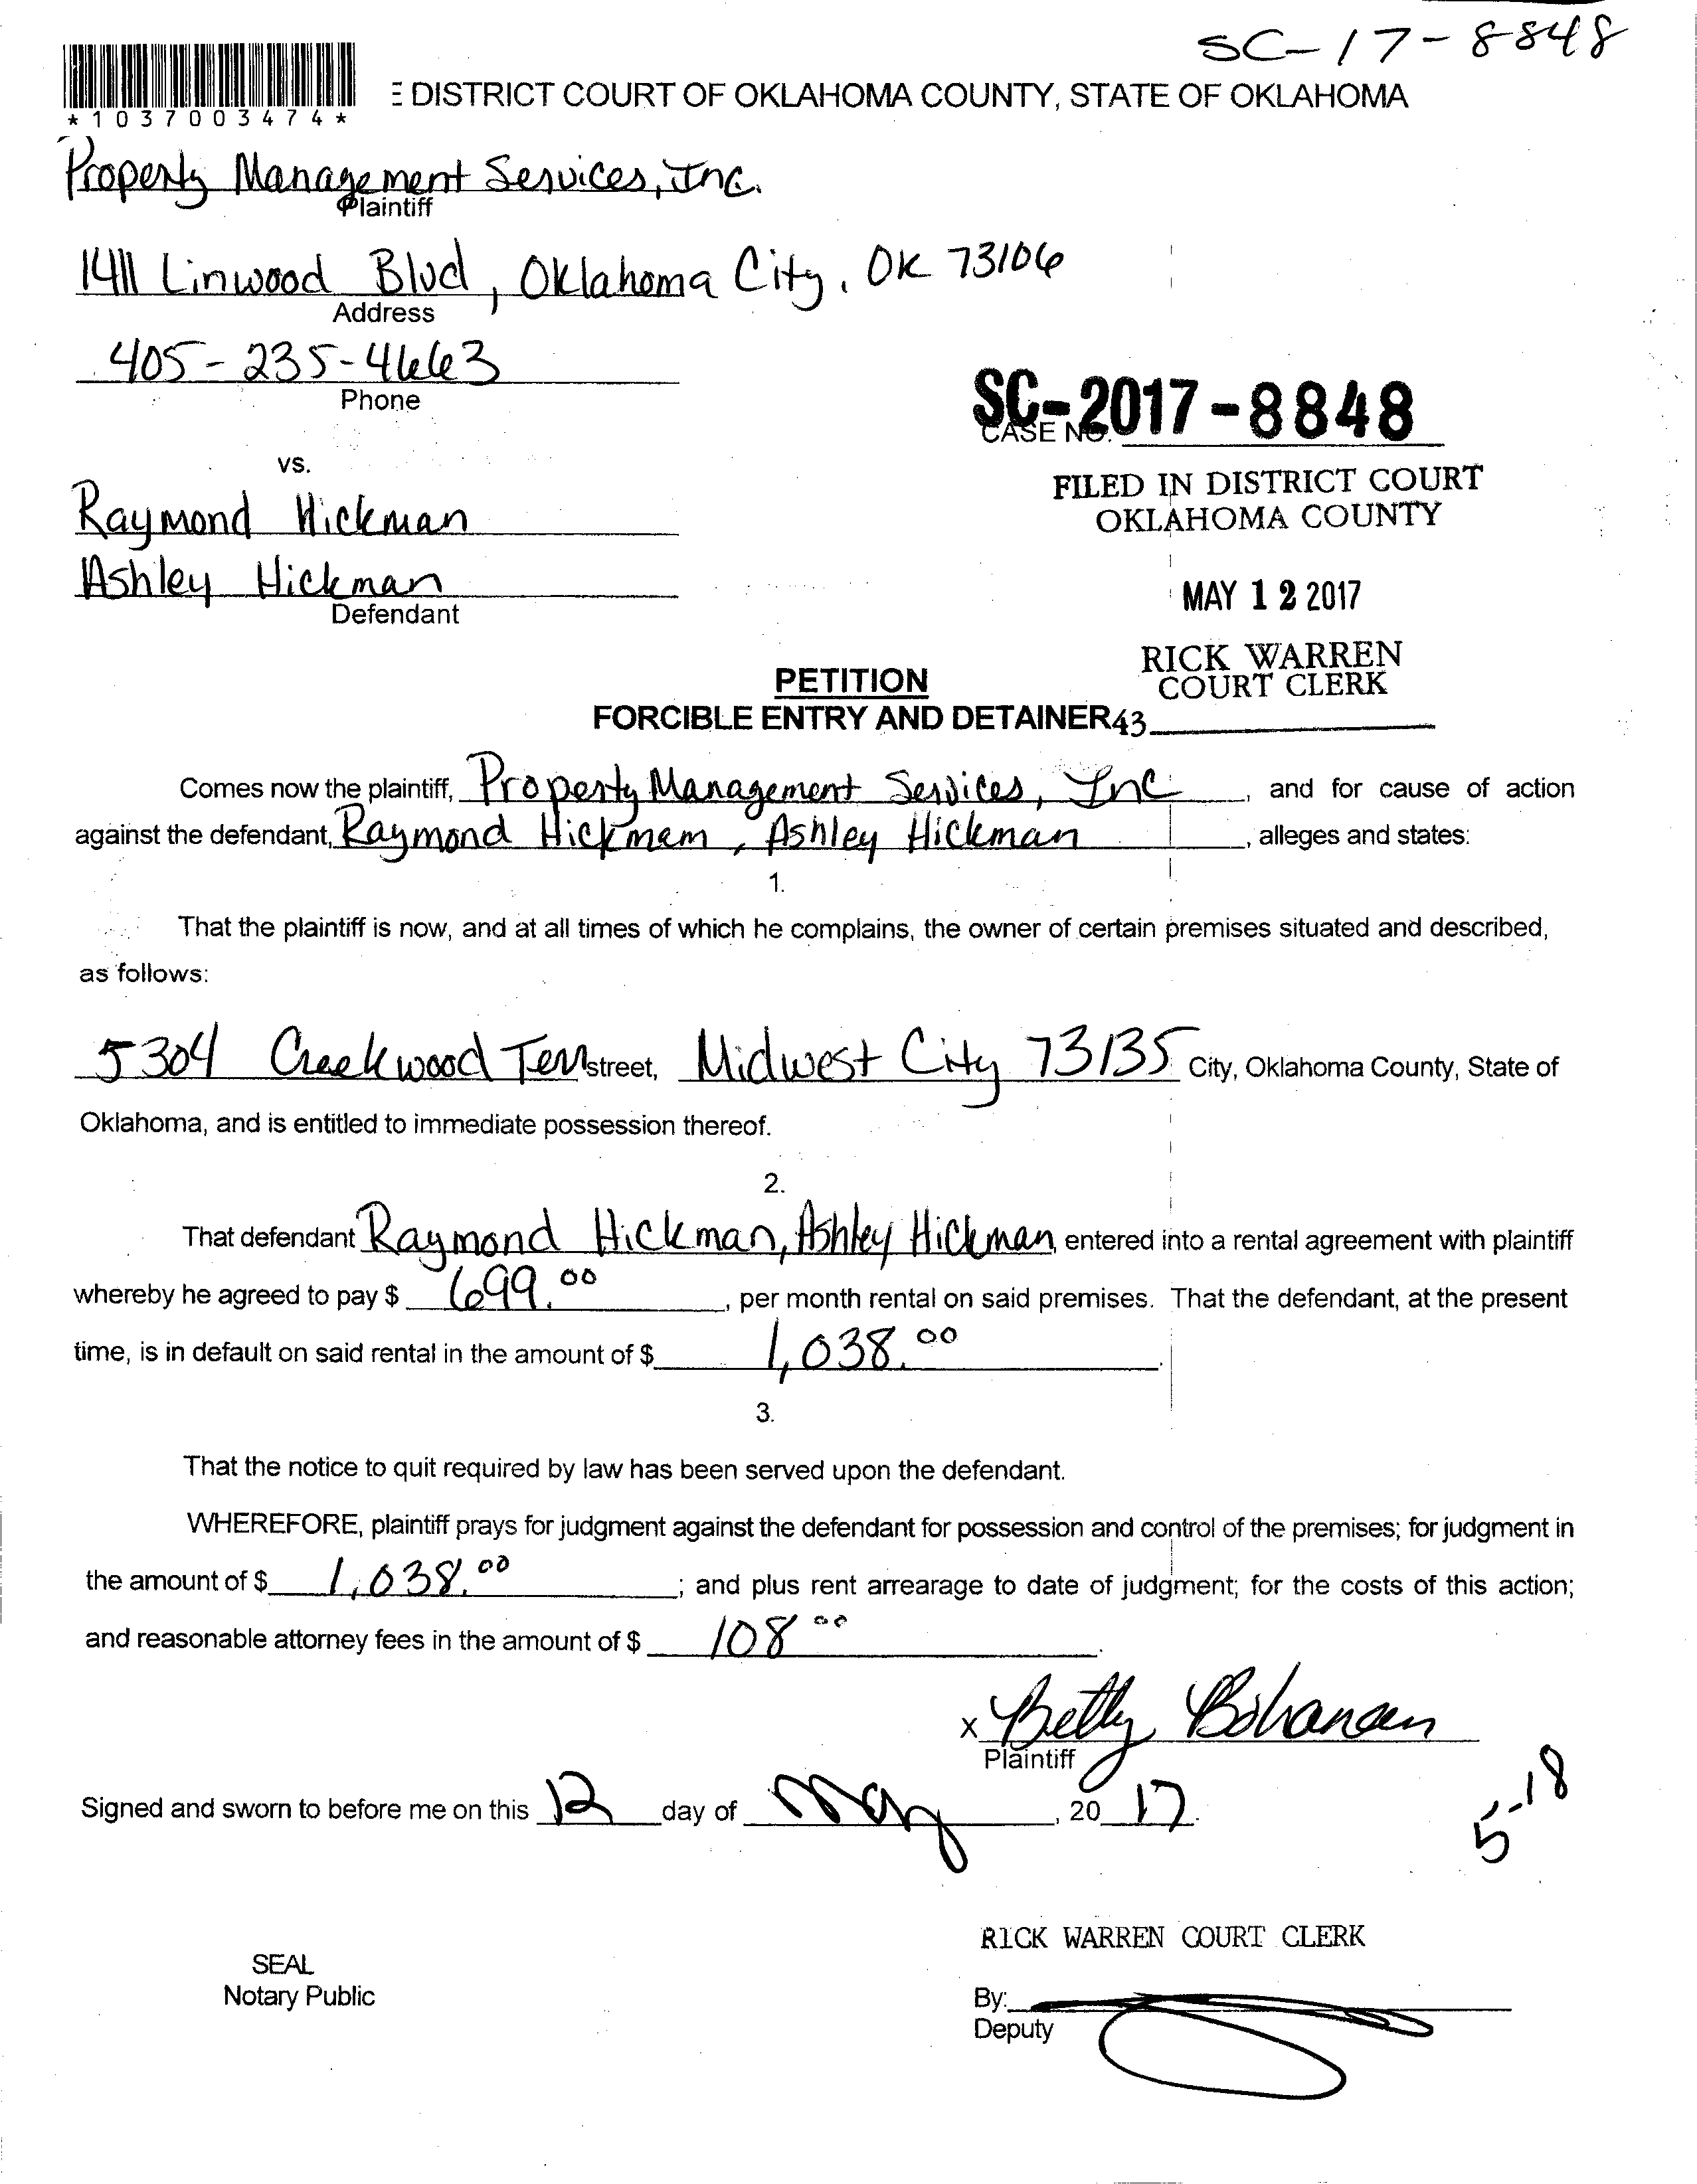 SC-17-8848
*1037003474*
E DISTRICT COURT OF OKLAHOMA COUNTY, STATE OF OKLAHOMA
Property Management Services, Inc.
Plaintiff
1411 Linwood Blvd, Oklahoma City, OK 73106
Address
405-235-4663
Phone
SC-2017-8848
CASE NO.
vs.
FILED IN DISTRICT COURT
OKLAHOMA COUNTY
Raymond Hickman
Ashley Hickman
Defendant
MAY 12 2017
RICK WARREN
COURT CLERK
PETITION
FORCIBLE ENTRY AND DETAINER 43
Comes now the plaintiff, Property Management Services, Inc, and for cause of action
against the defendant, Raymond Hickmem, Ashley Hickman, alleges and states:
1.
That the plaintiff is now, and at all times of which he complains, the owner of certain premises situated and described,
as follows:
5304 Creekwood Terr street, Midwest City 73135 City, Oklahoma County, State of
Oklahoma, and is entitled to immediate possession thereof.
2.
That defendant Raymond Hickman, Ashley Hickman, entered into a rental agreement with plaintiff
whereby he agreed to pay $ 699.00, per month rental on said premises. That the defendant, at the present
time, is in default on said rental in the amount of $ 1,038.00.
3.
That the notice to quit required by law has been served upon the defendant.
WHEREFORE, plaintiff prays for judgment against the defendant for possession and control of the premises; for judgment in
the amount of $ 1,038.00; and plus rent arrearage to date of judgment; for the costs of this action;
and reasonable attorney fees in the amount of $ 108 00.
x Betty Bohanan
Plaintiff
Signed and sworn to before me on this 12 day of May, 2017.
5-18
RICK WARREN COURT CLERK
SEAL
Notary Public
By:
Deputy